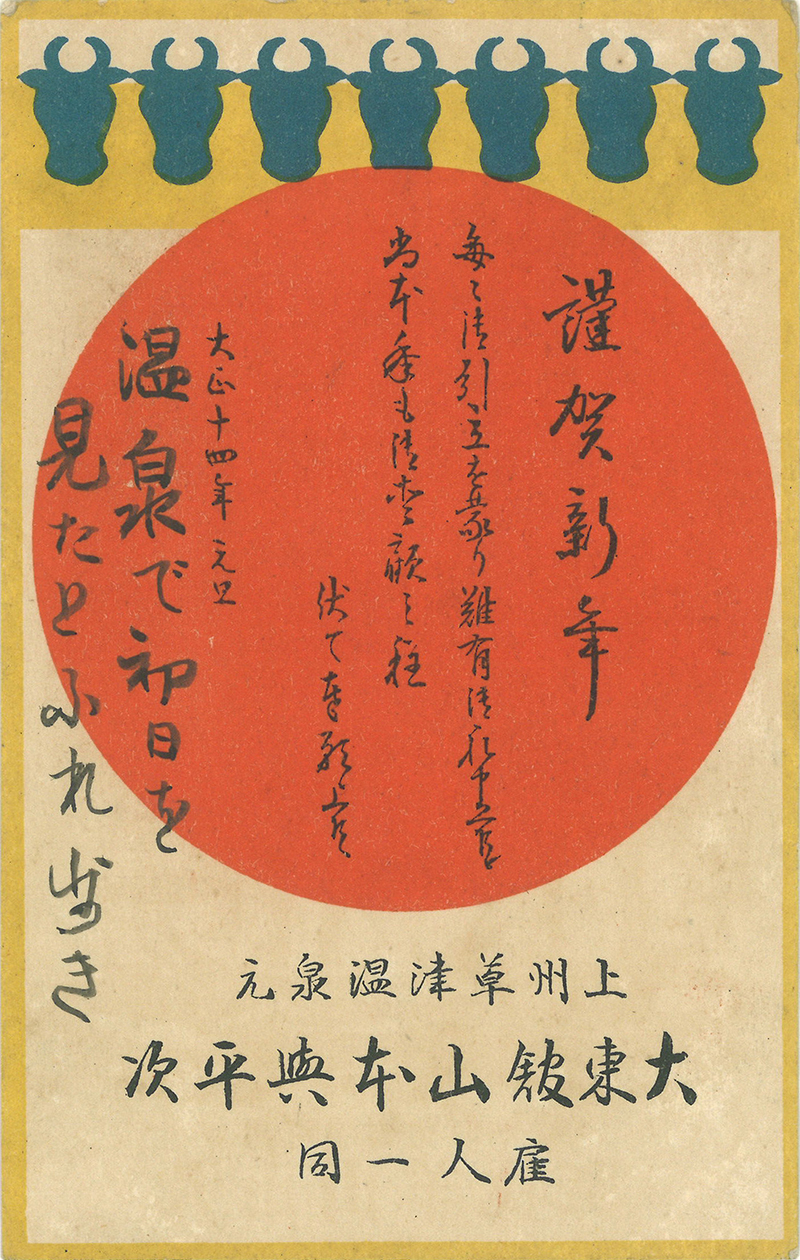 謹賀新年
毎々御引立を蒙り難有御礼申上候
尚本年も御愛顧之程
伏て奉願上候
大正十四年元旦
温泉で初日を
見たとふれ歩き
上州草津温泉元
大東舘山本與平次
雇人一同